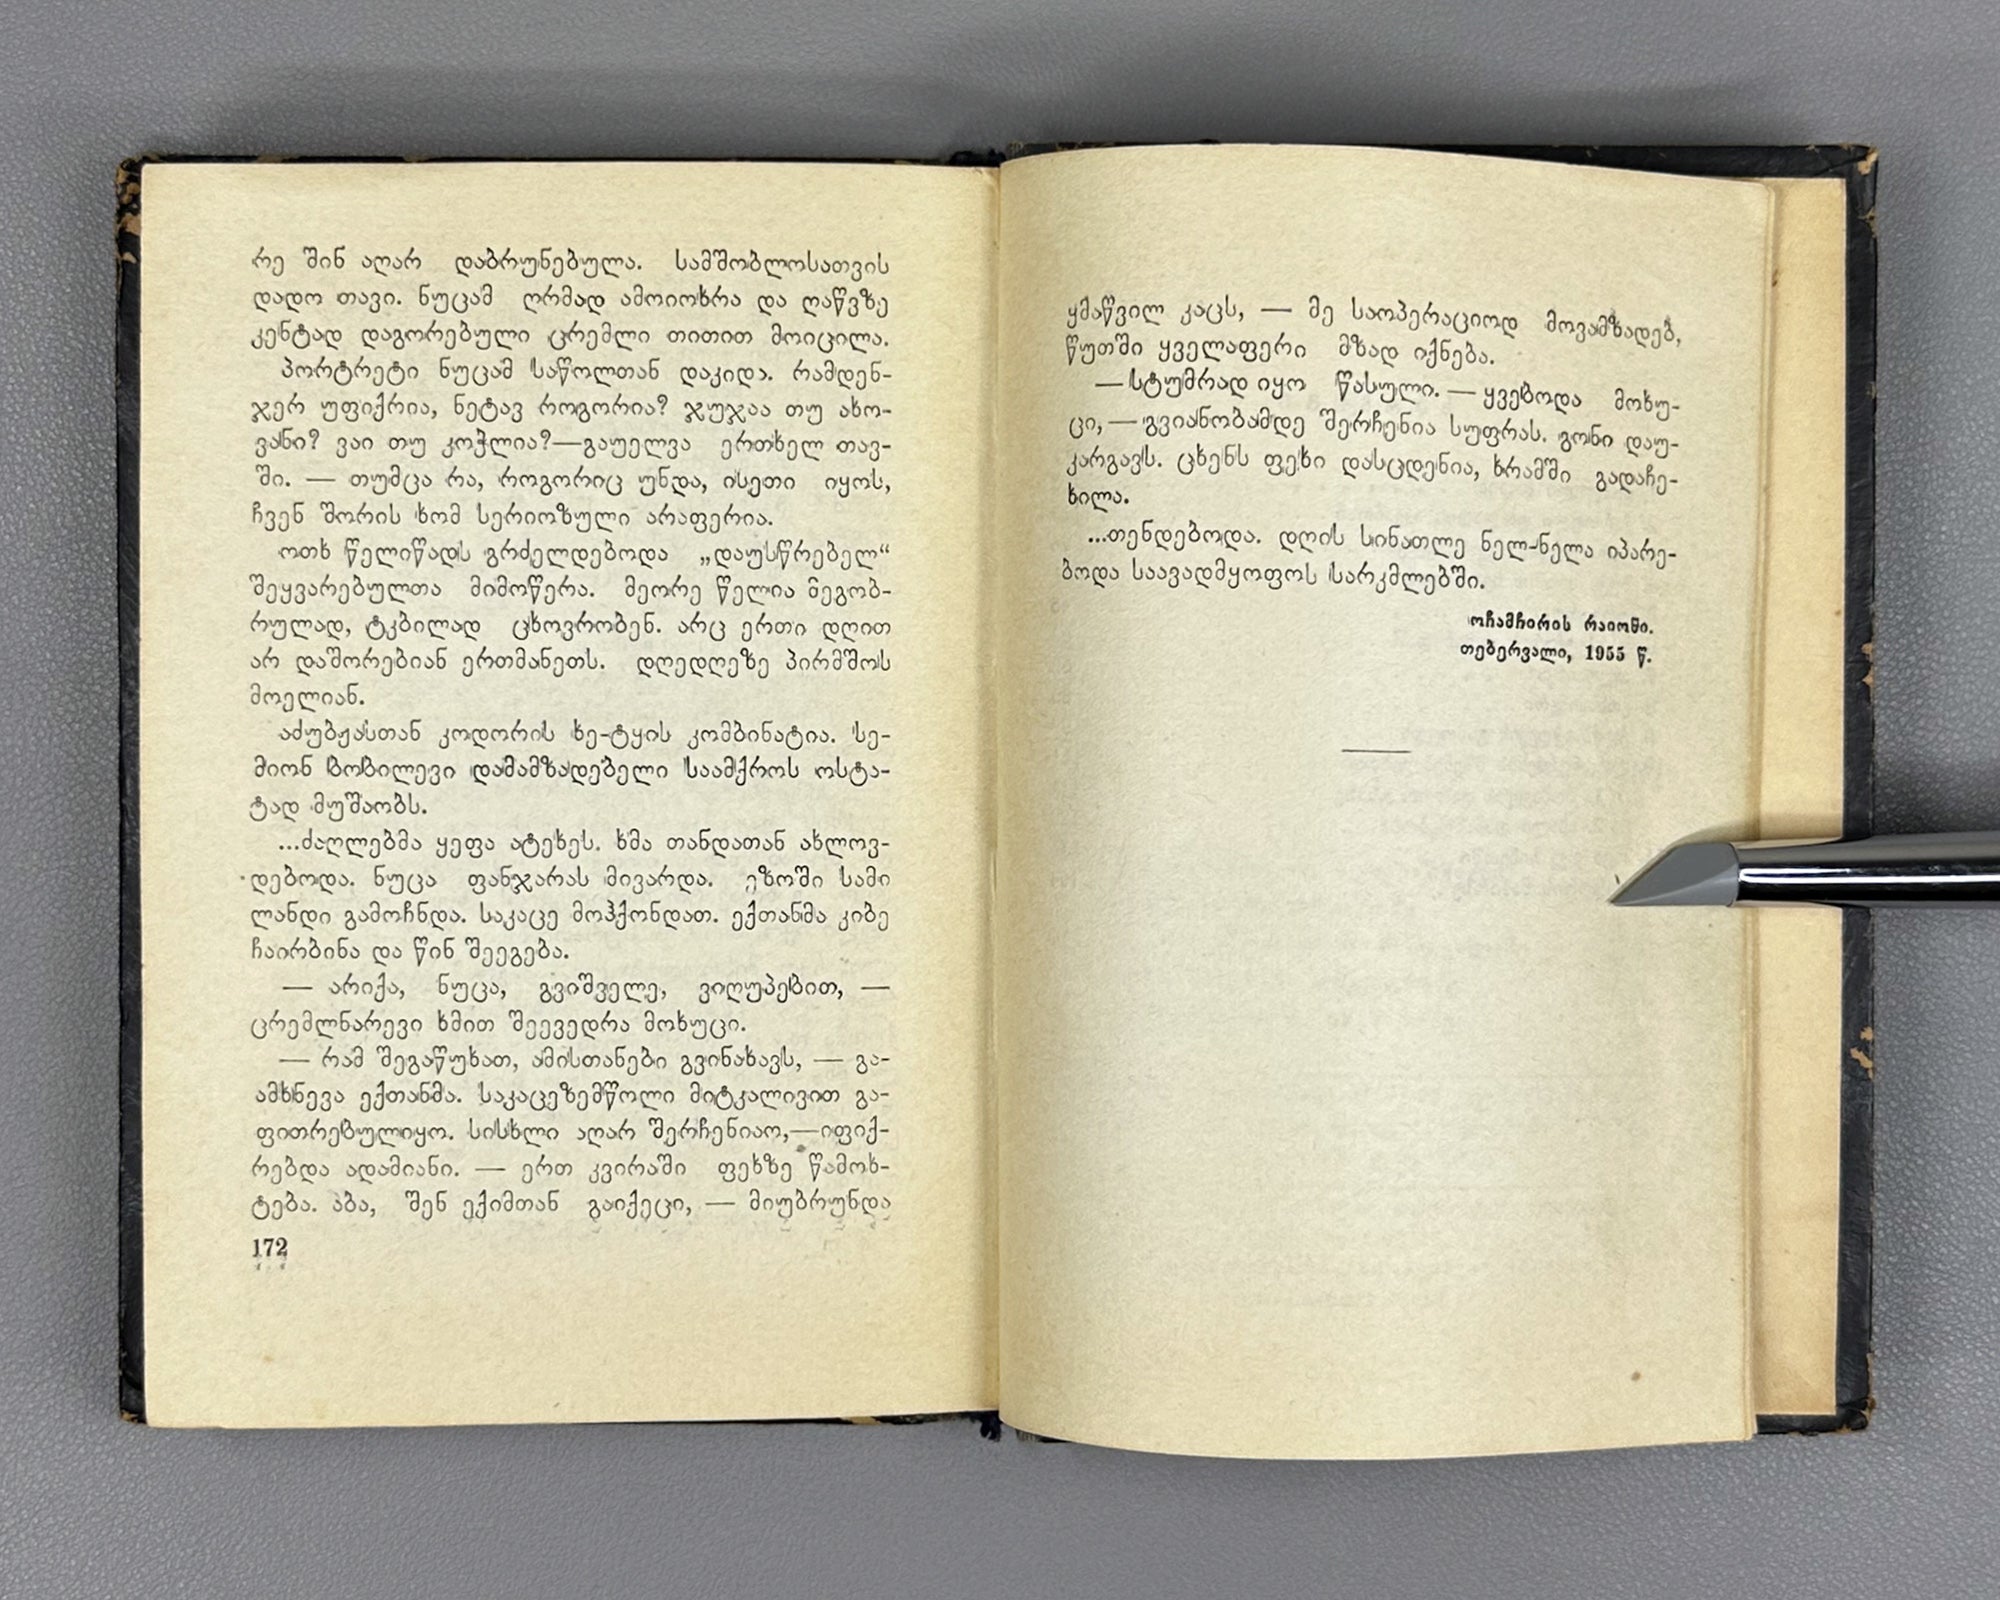 რე შინ აღარ დაბრუნებულა. სამშობლოსათვის
დადო თავი. ნუცამ ღრმად ამოიოხრა და ღაწვზე
კენტად დაგორებული ცრემლი თითით მოიცილა.
პორტრეტი ნუცამ საწოლთან დაკიდა. რამდენ-
ჯერ უფიქრია, ნეტავ როგორია? ჯუჯაა თუ ახო-
ვანი? ვაი თუ კოჭლია?—გაუელვა ერთხელ თავ-
ში. — თუმცა რა, როგორიც უნდა, ისეთი იყოს,
ჩვენ შორის ხომ სერიოზული არაფერია.
ოთხ წელიწადს გრძელდებოდა „დაუსწრებელ“
შეყვარებულთა მიმოწერა. მეორე წელია მეგობ-
რულად, ტკბილად ცხოვრობენ. არც ერთი დღით
არ დაშორებიან ერთმანეთს. დღედღეზე პირმშოს
მოელიან.
აძუბჟასთან კოდორის ხე-ტყის კომბინატია. სე-
მიონ ბობილევი დამამზადებელი საამქროს ოსტა-
ტად მუშაობს.
...ძაღლებმა ყეფა ატეხეს. ხმა თანდათან ახლოვ-
დებოდა. ნუცა ფანჯარას მივარდა. ეზოში სამი
ლანდი გამოჩნდა. საკაცე მოჰქონდათ. ექთანმა კიბე
ჩაირბინა და წინ შეეგება.
— არიქა, ნუცა, გვიშველე, ვიღუპებით, —
ცრემლნარევი ხმით შეევედრა მოხუცი.
— რამ შეგაწუხათ, ამისთანები გვინახავს, — გა-
ამხნევა ექთანმა. საკაცეზემწოლი მიტკალივით გა-
ფითრებულიყო. სისხლი აღარ შერჩენიაო,—იფიქ-
რებდა ადამიანი. — ერთ კვირაში ფეხზე წამოხ-
ტება. აბა, შენ ექიმთან გაიქეცი, — მიუბრუნდა
172
ყმაწვილ კაცს, — მე საოპერაციოდ მოვამზადებ,
წუთში ყველაფერი მზად იქნება.
— სტუმრად იყო წასული. — ყვებოდა მოხუ-
ცი, — გვიანობამდე შერჩენია სუფრას. გონი დაუ-
კარგავს. ცხენს ფეხი დასცდენია, ხრამში გადაჩე-
ხილა.
...თენდებოდა. დღის სინათლე ნელ-ნელა იპარე-
ბოდა საავადმყოფოს სარკმლებში.
ოჩამჩირის რაიონი.
თებერვალი, 1955 წ.